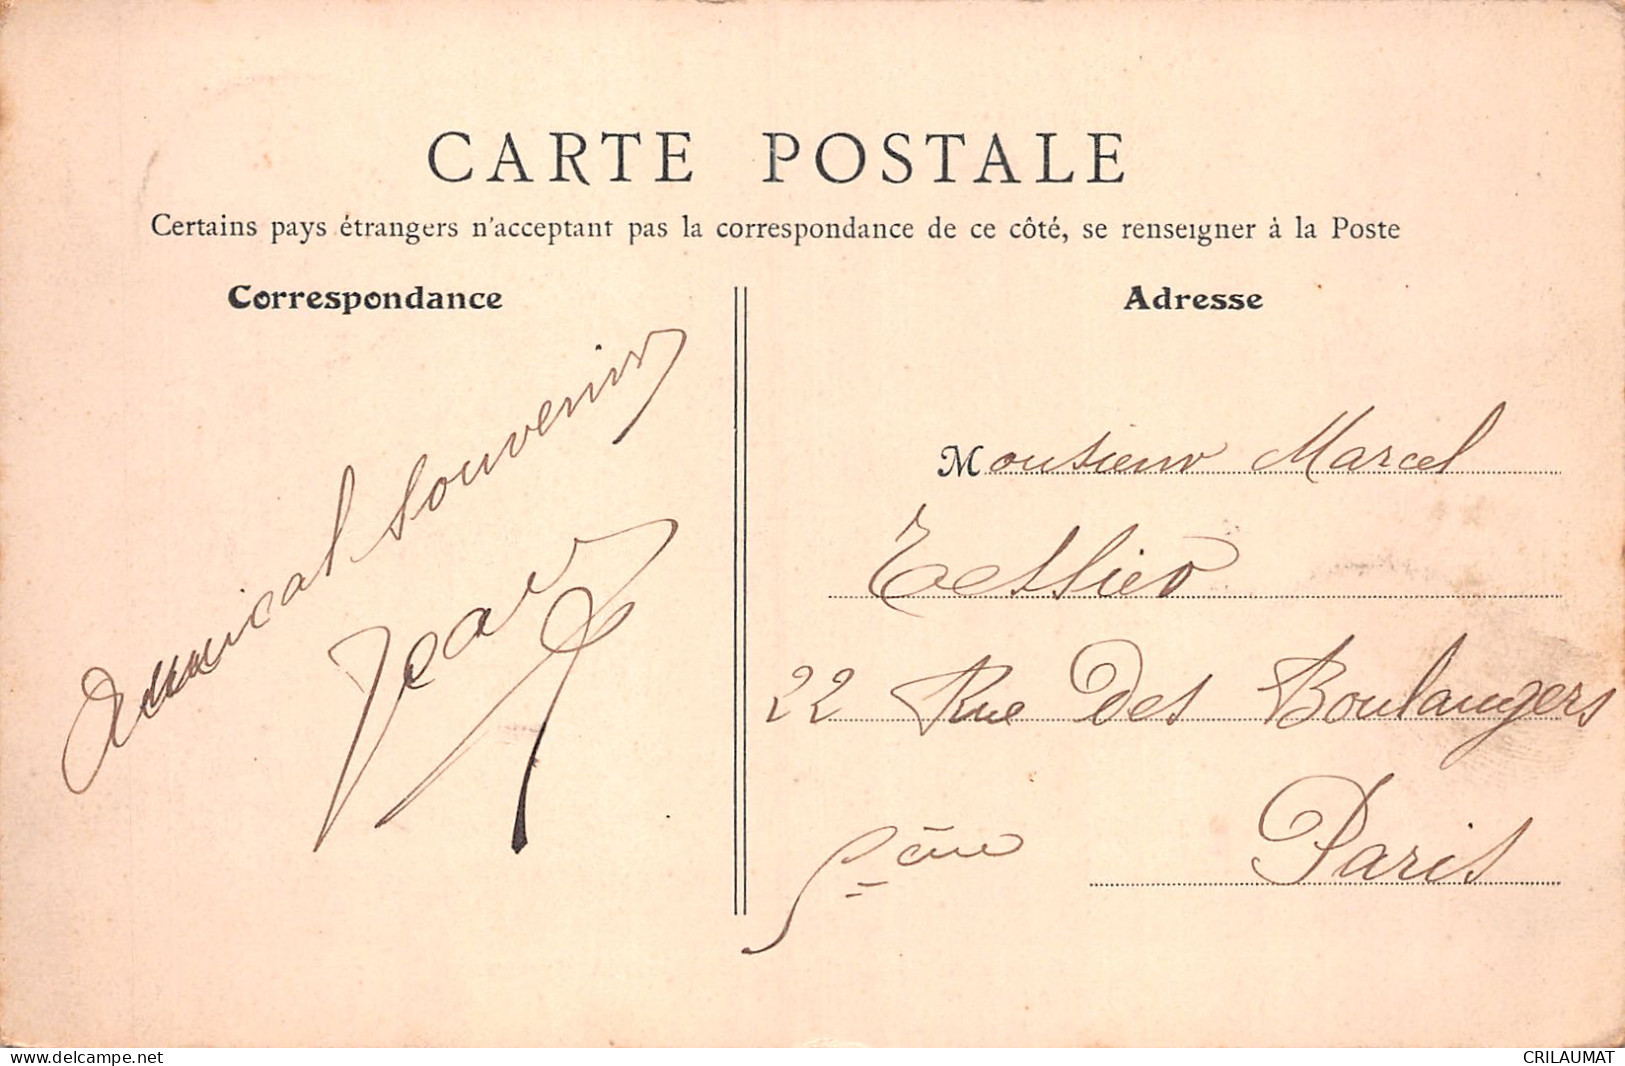 CARTE POSTALE
Certains pays étrangers n'acceptant pas la correspondance de ce côté, se renseigner à la Poste
Correspondance
Amical Souvenir
Jean
Adresse
Monsieur Marcel
Tessier
22 Rue Des Boulangers
Paris
5ème
www.delcampe.net
CRILAUMAT